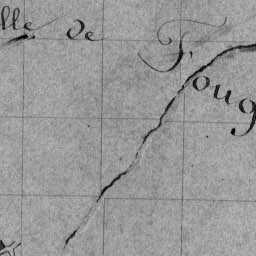 lle de
Foug